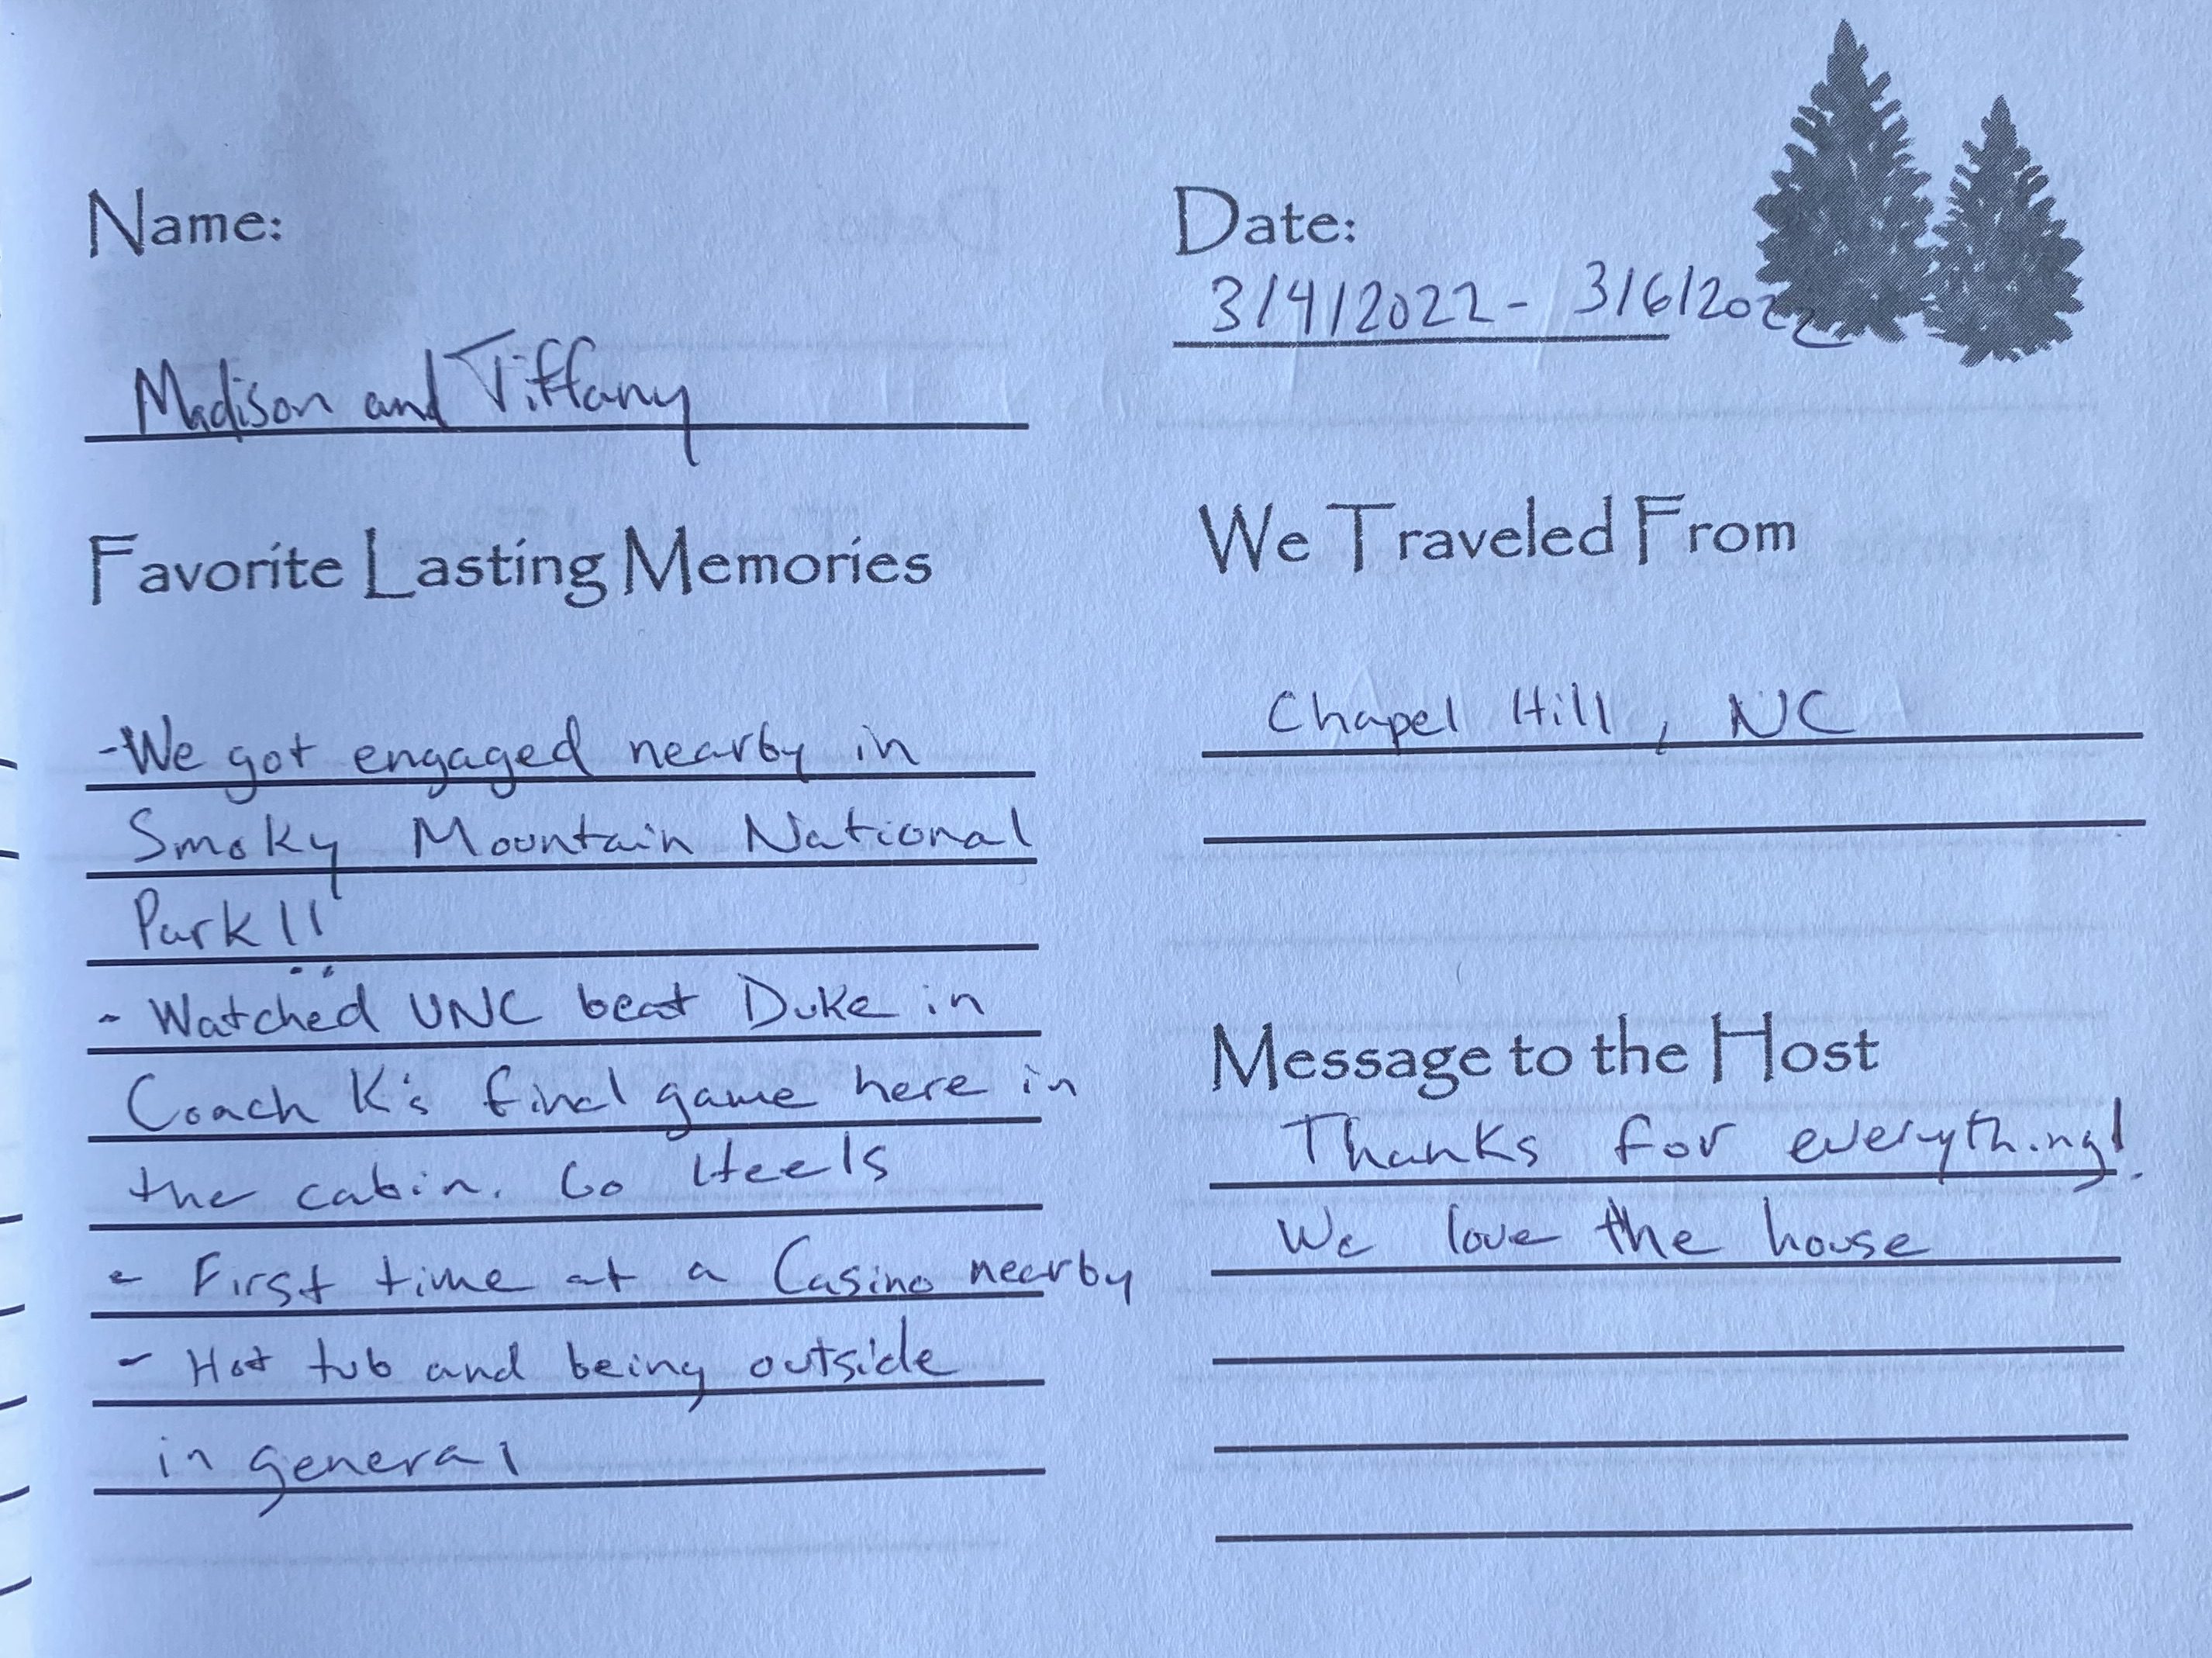 Name:
Madison and Tiffany
Date:
3/4/2022 - 3/6/2022
Favorite Lasting Memories
-We got engaged nearby in
Smoky Mountain National
Park!!
- Watched UNC beat Duke in
Coach K's final game here in
the cabin. Go Heels
- First time at a Casino nearby
- Hot tub and being outside
in general
We Traveled From
Chapel Hill, NC
Message to the Host
Thanks for everything!
We love the house